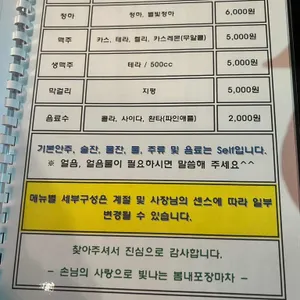 청하 청하, 별빛청하 6,000원
맥주 카스, 테라, 켈리, 카스레몬(무알콜) 5,000원
생맥주 테라 / 500cc 5,000원
막걸리 지평 5,000원
음료수 콜라, 사이다, 환타(파인애플) 2,000원
기본안주, 술잔, 물잔, 물, 주류 및 음료는 Self입니다.
※ 얼음, 얼음물이 필요하시면 말씀해 주세요^^
메뉴별 세부구성은 계절 및 사장님의 센스에 따라 일부
변경될 수 있습니다.
찾아주셔서 진심으로 감사합니다.
- 손님의 사랑으로 빛나는 봄내포장마차 -